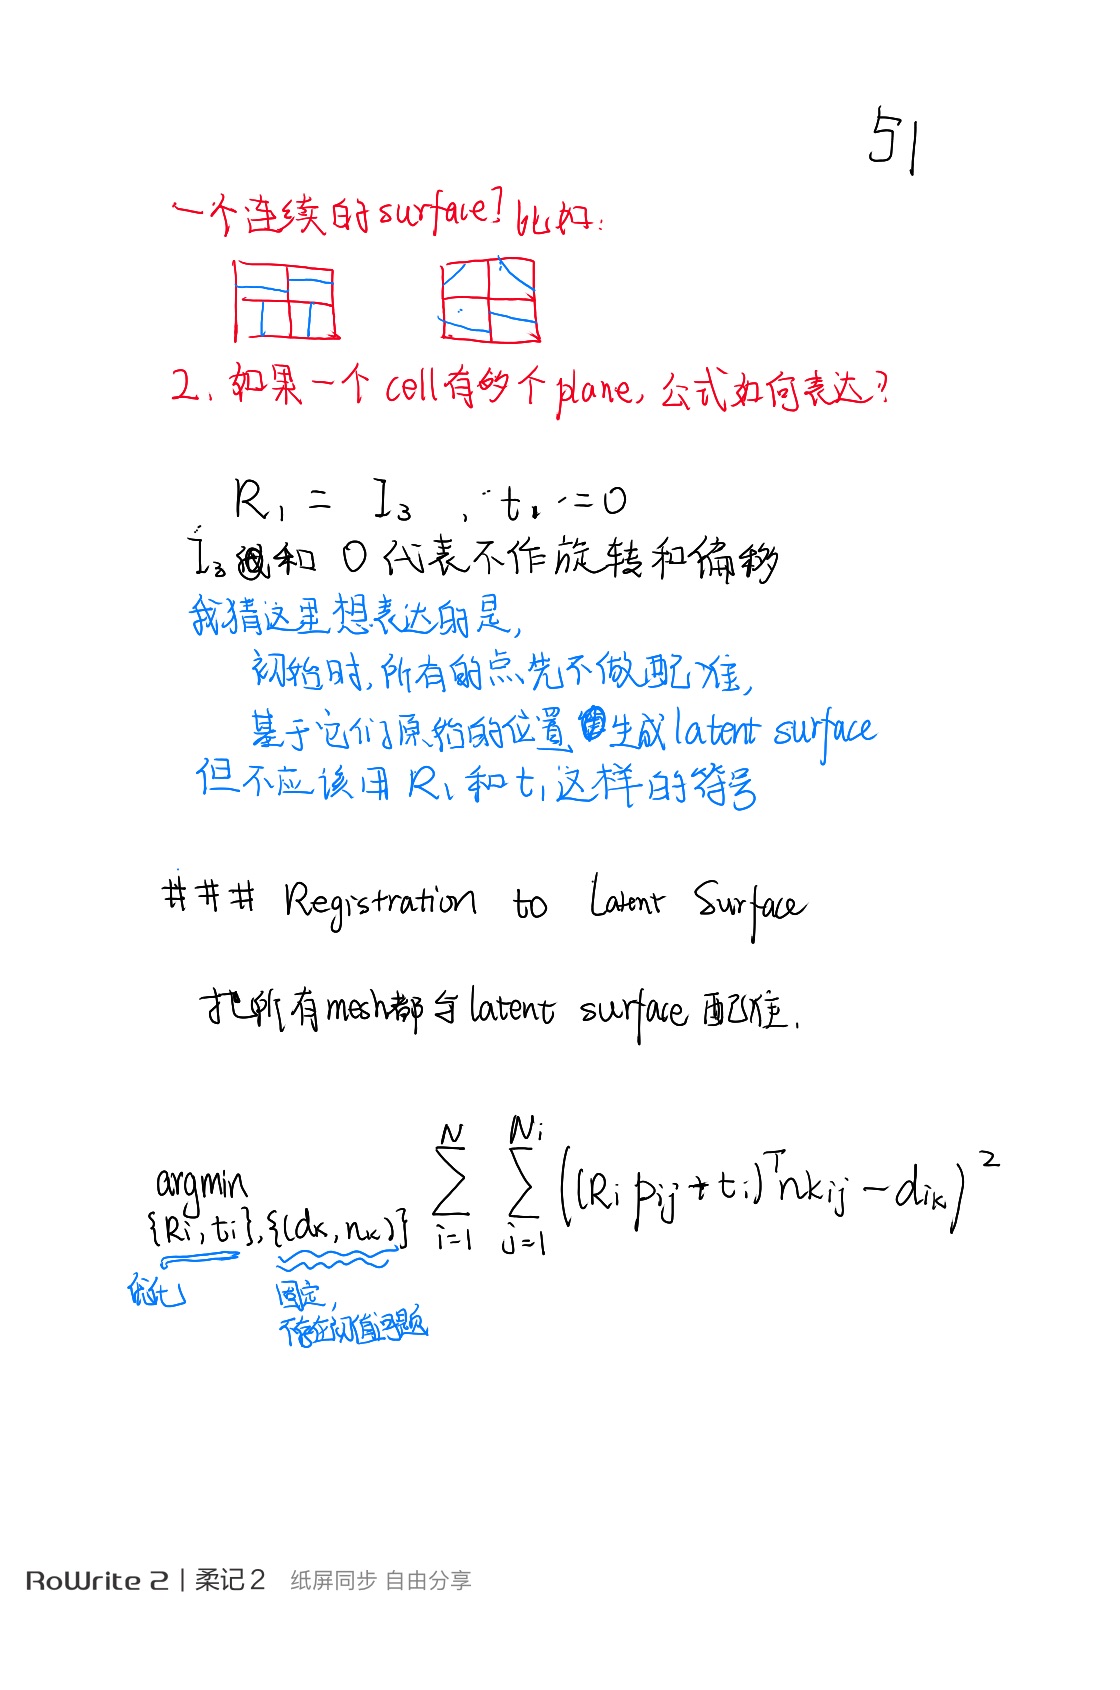 51
一个连续的surface？比如：
2. 如果一个cell有多个plane，公式如何表达？
R₁ = I₃ , t₁ = 0
I₃ 和 0 代表不作旋转和偏移
我猜这里想表达的是，
初始时，所有的点先不做配准，
基于它们原始的位置 生成latent surface
但不应该用 R₁ 和 t₁ 这样的符号
### Registration to Latent Surface
把所有mesh都与latent surface配准.
argmin {Ri, ti}, {(dk, nk)} ∑_{i=1}^{N} ∑_{j=1}^{Ni} ((Ri pij + ti)^T nkij − dik)^2
优化 固定，
不存在初值问题
RoWrite 2 | 柔记 2 纸屏同步 自由分享